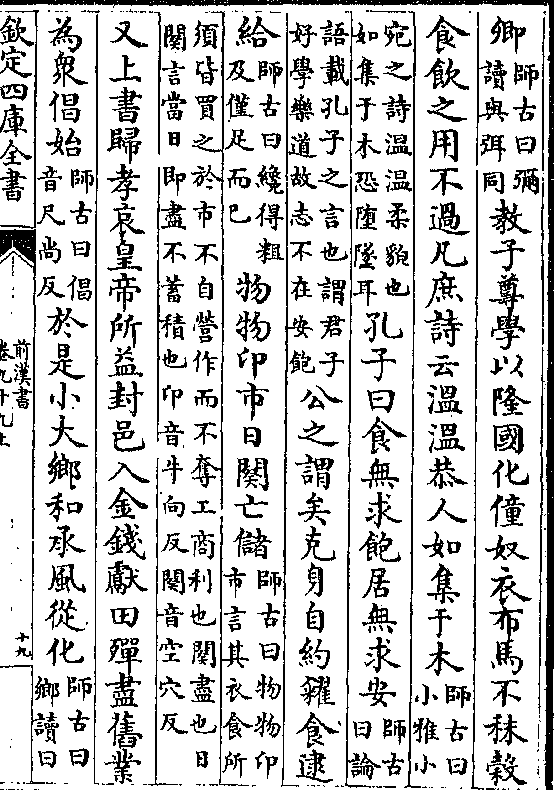 卿師古曰彌讀與弭同教子尊學以隆國化僮奴衣布馬不秣穀
食飲之用不過凡庶詩云溫溫恭人如集于木師古曰小雅小
宛之詩溫溫柔貌也如集于木恐墮墜耳孔子曰食無求飽居無求安師古曰論
語載孔子之言也謂君子好學樂道故志不在安飽公之謂矣克身自約糴食逮
給師古曰纔得粗及僅足而已物物卬市日闋亡儲師古曰物物卬市言其衣食所
須皆買之於市不自營作而不奪工商利也闋盡也日闋言當日即盡不蓄積也卬音牛向反闋音空穴反
又上書歸孝哀皇帝所益封邑入金錢獻田殫盡舊業
為衆倡始師古曰倡音尺尚反於是小大鄉和承風從化師古曰鄉讀曰
欽定四庫全書
前漢書
卷九十九上
十九